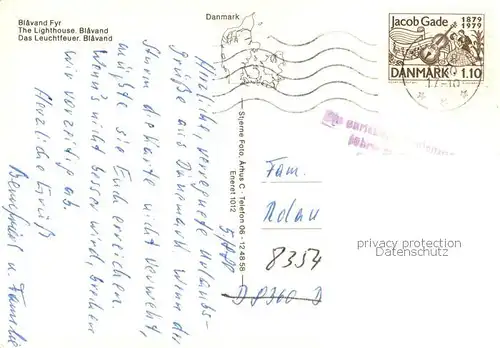 Blåvand Fyr
The Lighthouse. Blåvand
Das Leuchtfeuer. Blåvand
Danmark
Jacob Gade 1879
1979
DANMARK 1.10
Stjerne Foto, Århus C · Telefon 06 - 12 48 58
Eneret 1012
Herzliche, verregnete Urlaubs-
grüße aus Dänemark. Wenn der
Sturm die Karte nicht verweht,
müßte sie Euch erreichen.
Wenn's nicht besser wird, brechen
wir vorzeitig ab.
Herzliche Grüße
u. Familie
Fam.
8354
D 8360 D
privacy protection
Datenschutz